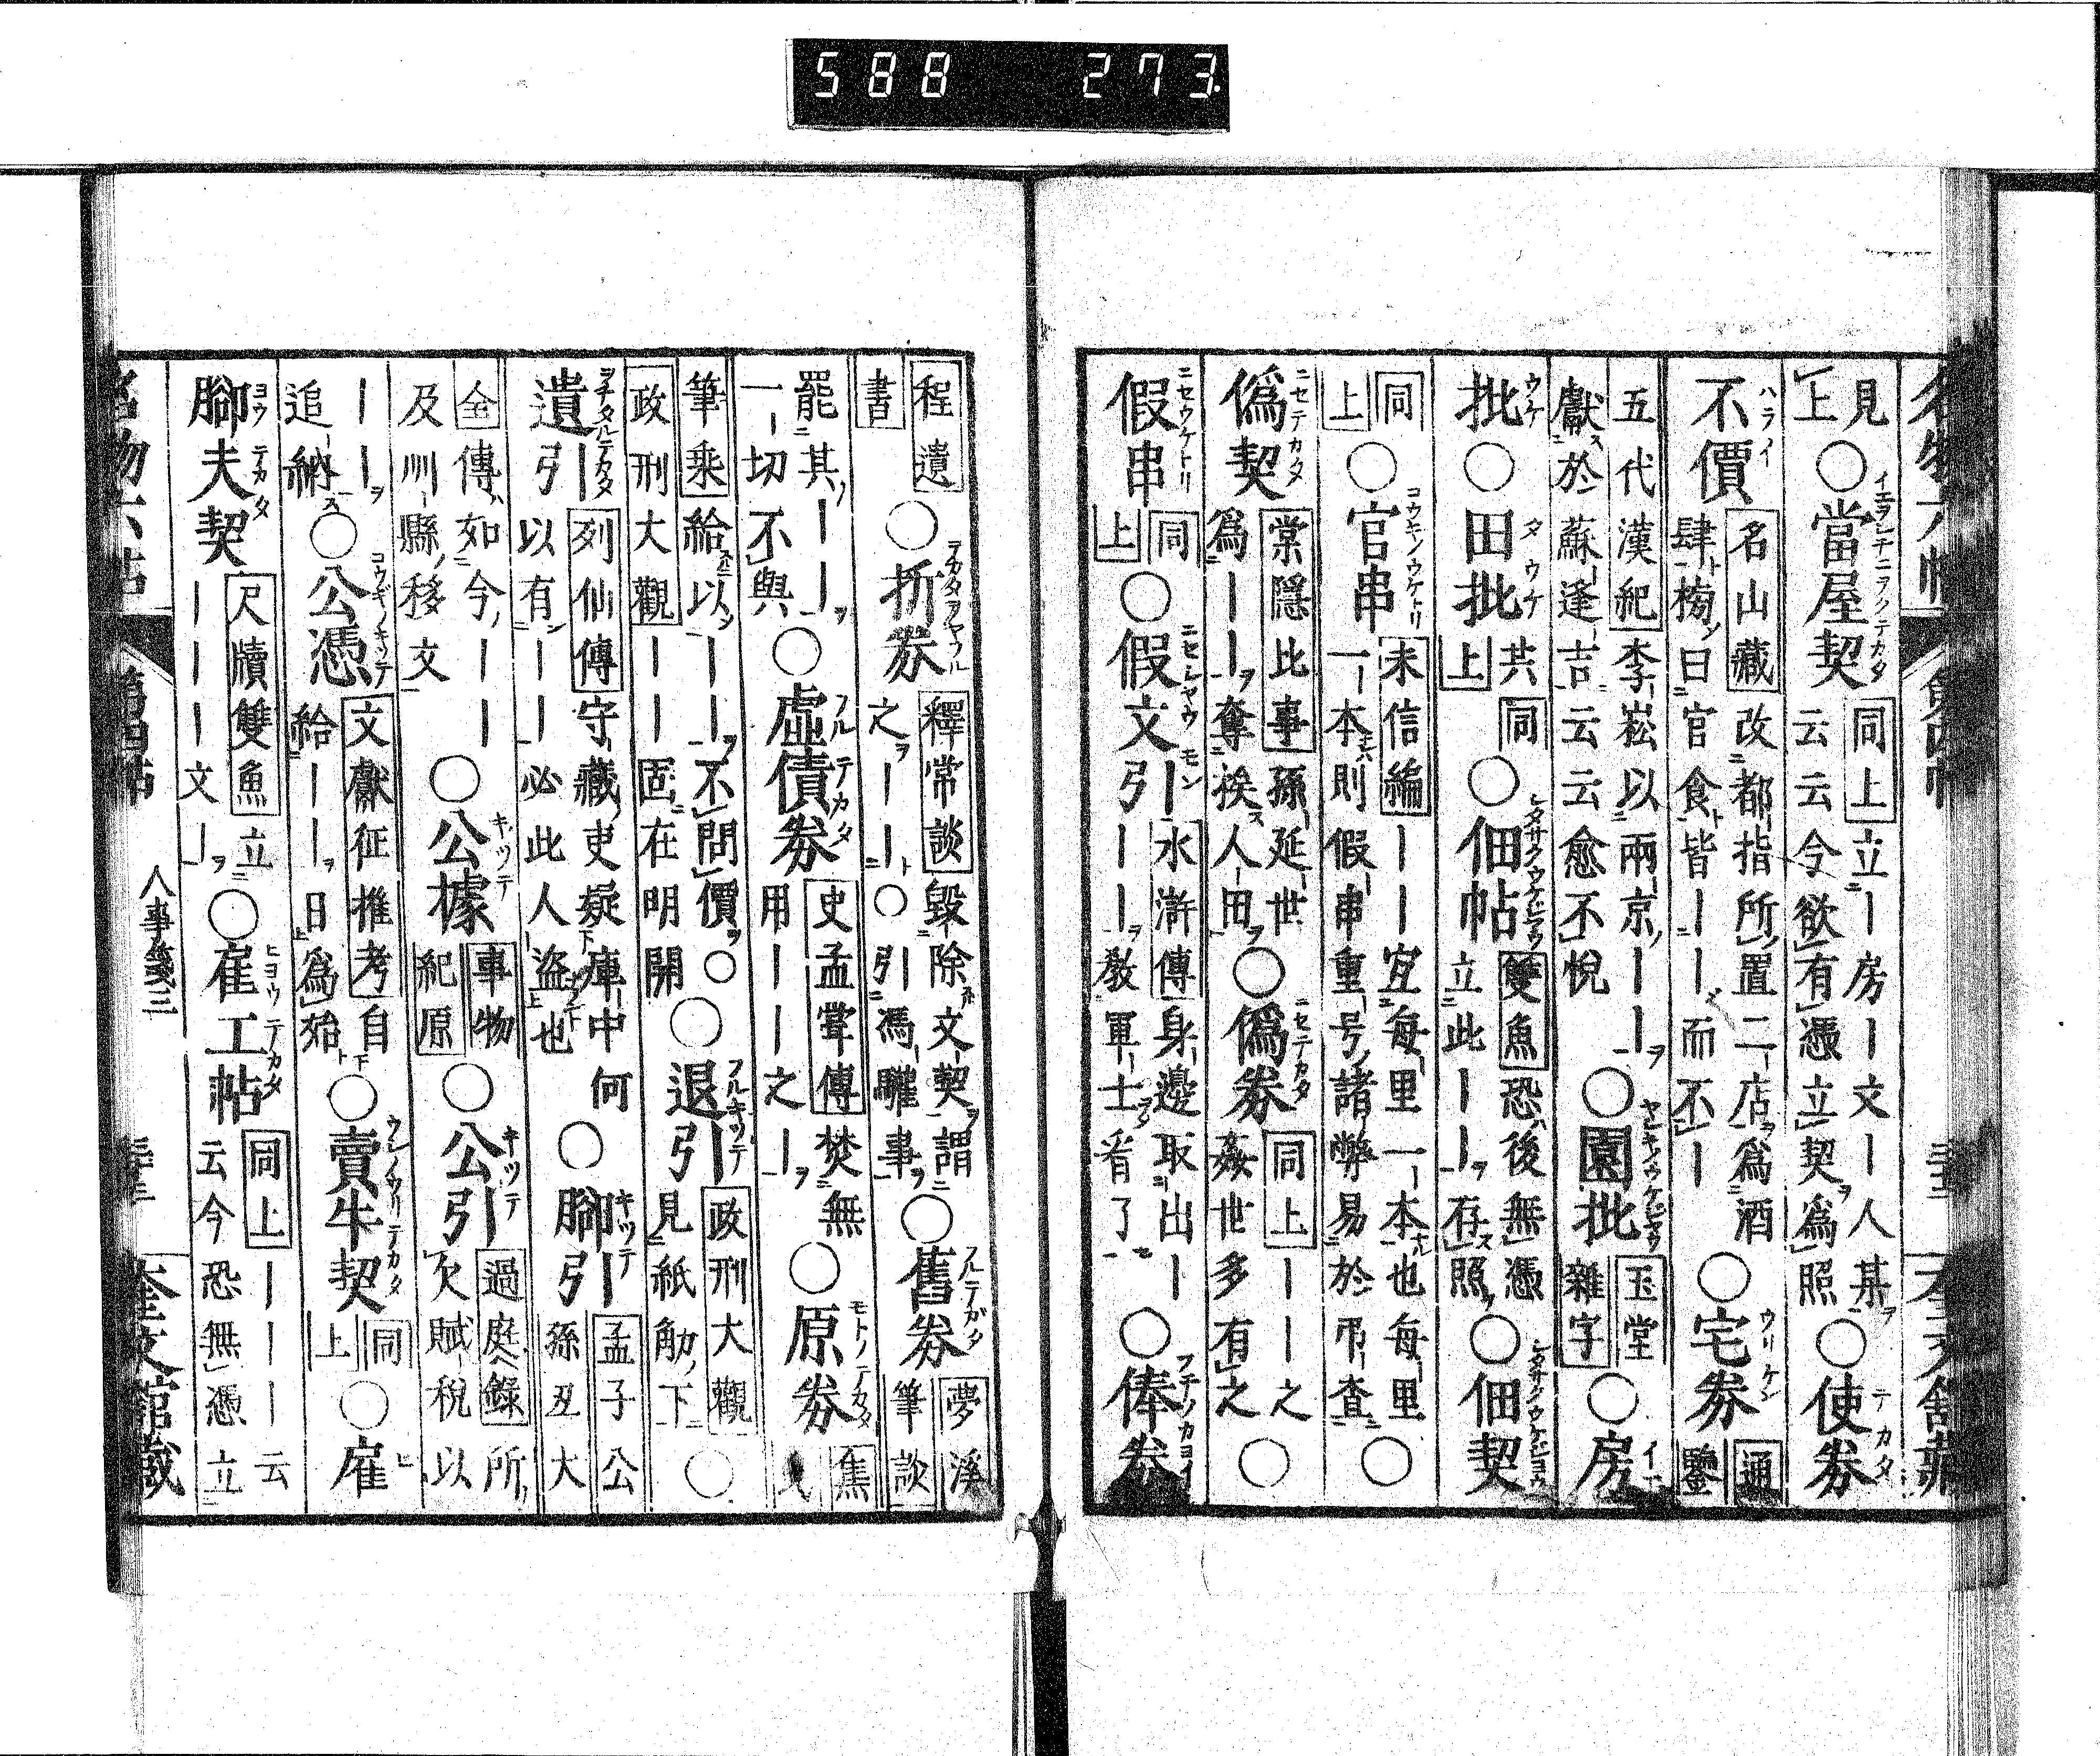 588 273
見上○當屋契 同上 立—房—文—人某云云今欲有憑立契爲照○使券
不價 名山藏 改都指所置二店爲酒肆榜曰官食皆——而不—○宅券 通鑒
五代漢紀 李崧以兩京——獻於蘇逢吉云云愈不悅○園批 玉堂雜字○房
批○田批 共同上○佃帖 雙魚 恐後無憑立此——存照○佃契
同上○官串 未信編 ———宜每里一本也每里一本則假串重号諸弊易於弔查○
僞契 棠隱比事 孫延世爲——奪挨人田○僞券 同上 ———之姦世多有之○
假串 同上○假文引 水滸傳 身邊取出———教軍士看了○俸券
程遺書○折券 釋常談 毀除文契謂之——○引馮驩事○舊券 夢溪筆談
罷其——一切不與○虛債券 史孟甞傳 焚無用——之—○原券 焦
筆乘 給以——不問價○○退引 政刑大觀 見紙觔下○
政刑大觀 ——固在明開
遺引 列仙傳 守藏吏疑庫中何以有——必此人盜也○腳引 孟子公孫丑大
全傳 如今——及州縣移文○公據 事物紀原○公引 過庭錄 所欠賦稅以
——追納○公憑 文獻征搉考 自給——日爲始○賣牛契 同上○雇
腳夫契 尺牘雙魚 立———文—○雇工帖 同上 ———云云今恐無憑立
名物六帖 第四帖 人事箋三 奎文館藏